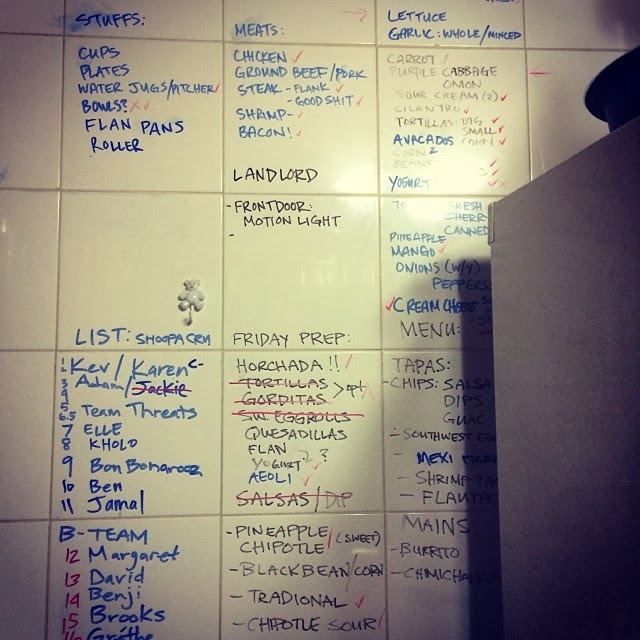 STUFFS:
CUPS
PLATES
WATER JUGS/PITCHER
BOWLS?
FLAN PANS
ROLLER
MEATS:
CHICKEN
GROUND BEEF/PORK
STEAK - FLANK
- GOOD SHIT
SHAMP-
BACON!
LETTUCE
GARLIC: WHOLE/MINCED
CARROT
PURPLE CABBAGE
ONION
SOUR CREAM (2)
CILANTRO
TORTILLAS: BIG
SMALL
AVACADOS
CORN 2
BEANS
YOGURT
LANDLORD
- FRONTDOOR:
MOTION LIGHT
-
TO FRESH
CHERR
CANNED
PINEAPPLE
MANGO
ONIONS (W/Y)
PEPPERS
CREAM CHEESE
LIST: SHOOPACRU
1 Kev/Karen C-
3 Adam/Jackie
4
5 Team Threats
6.5
7 ELLE
8 KHOLO
9 Bon Bonarooz
10 Ben
11 Jamal
B-TEAM
12 Margaret
13 David
14 Benji
15 Brooks
16 Grethe
FRIDAY PREP:
HORCHADA !!
TORTILLAS
GORDITAS > opt
SW EGGROLLS
QUESADILLAS
FLAN
YOGURT ?
AEOLI
SALSAS/DIP
- PINEAPPLE
CHIPOTLE (SWEET)
- BLACKBEAN/CORN
- TRADIONAL
- CHIPOTLE SOUR
MENU:
TAPAS:
- CHIPS: SALSA
DIPS
GUAC
- SOUTHWEST EGG
- MEXI
- SHRIMP TA
- FLAUTAS
MAINS:
- BURRITO
- CHIMICHANGA